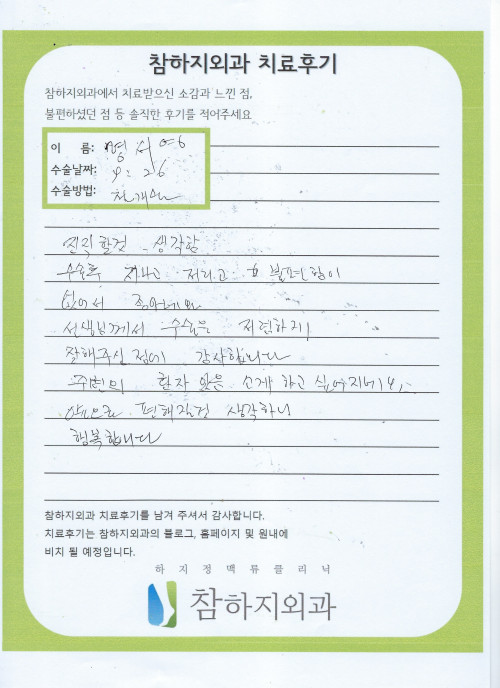 참하지외과 치료후기
참하지외과에서 치료받으신 소감과 느낀 점,
불편하셨던 점 등 솔직한 후기를 적어주세요
이 름: 명
수술날짜: 9. 26
수술방법:
진작할것 생각함
수술후 저리고 불편함이
없어서 좋아네요
선생님께서 수술을 저렴하게
잘해주신 점에 감사합니다
주변의 환자 소개 하고 싶어지네요
앞으로 편해질것 생각하니
행복합니다
참하지외과 치료후기를 남겨 주셔서 감사합니다.
치료후기는 참하지외과의 블로그, 홈페이지 및 원내에
비치 될 예정입니다.
하지정맥류클리닉
참하지외과